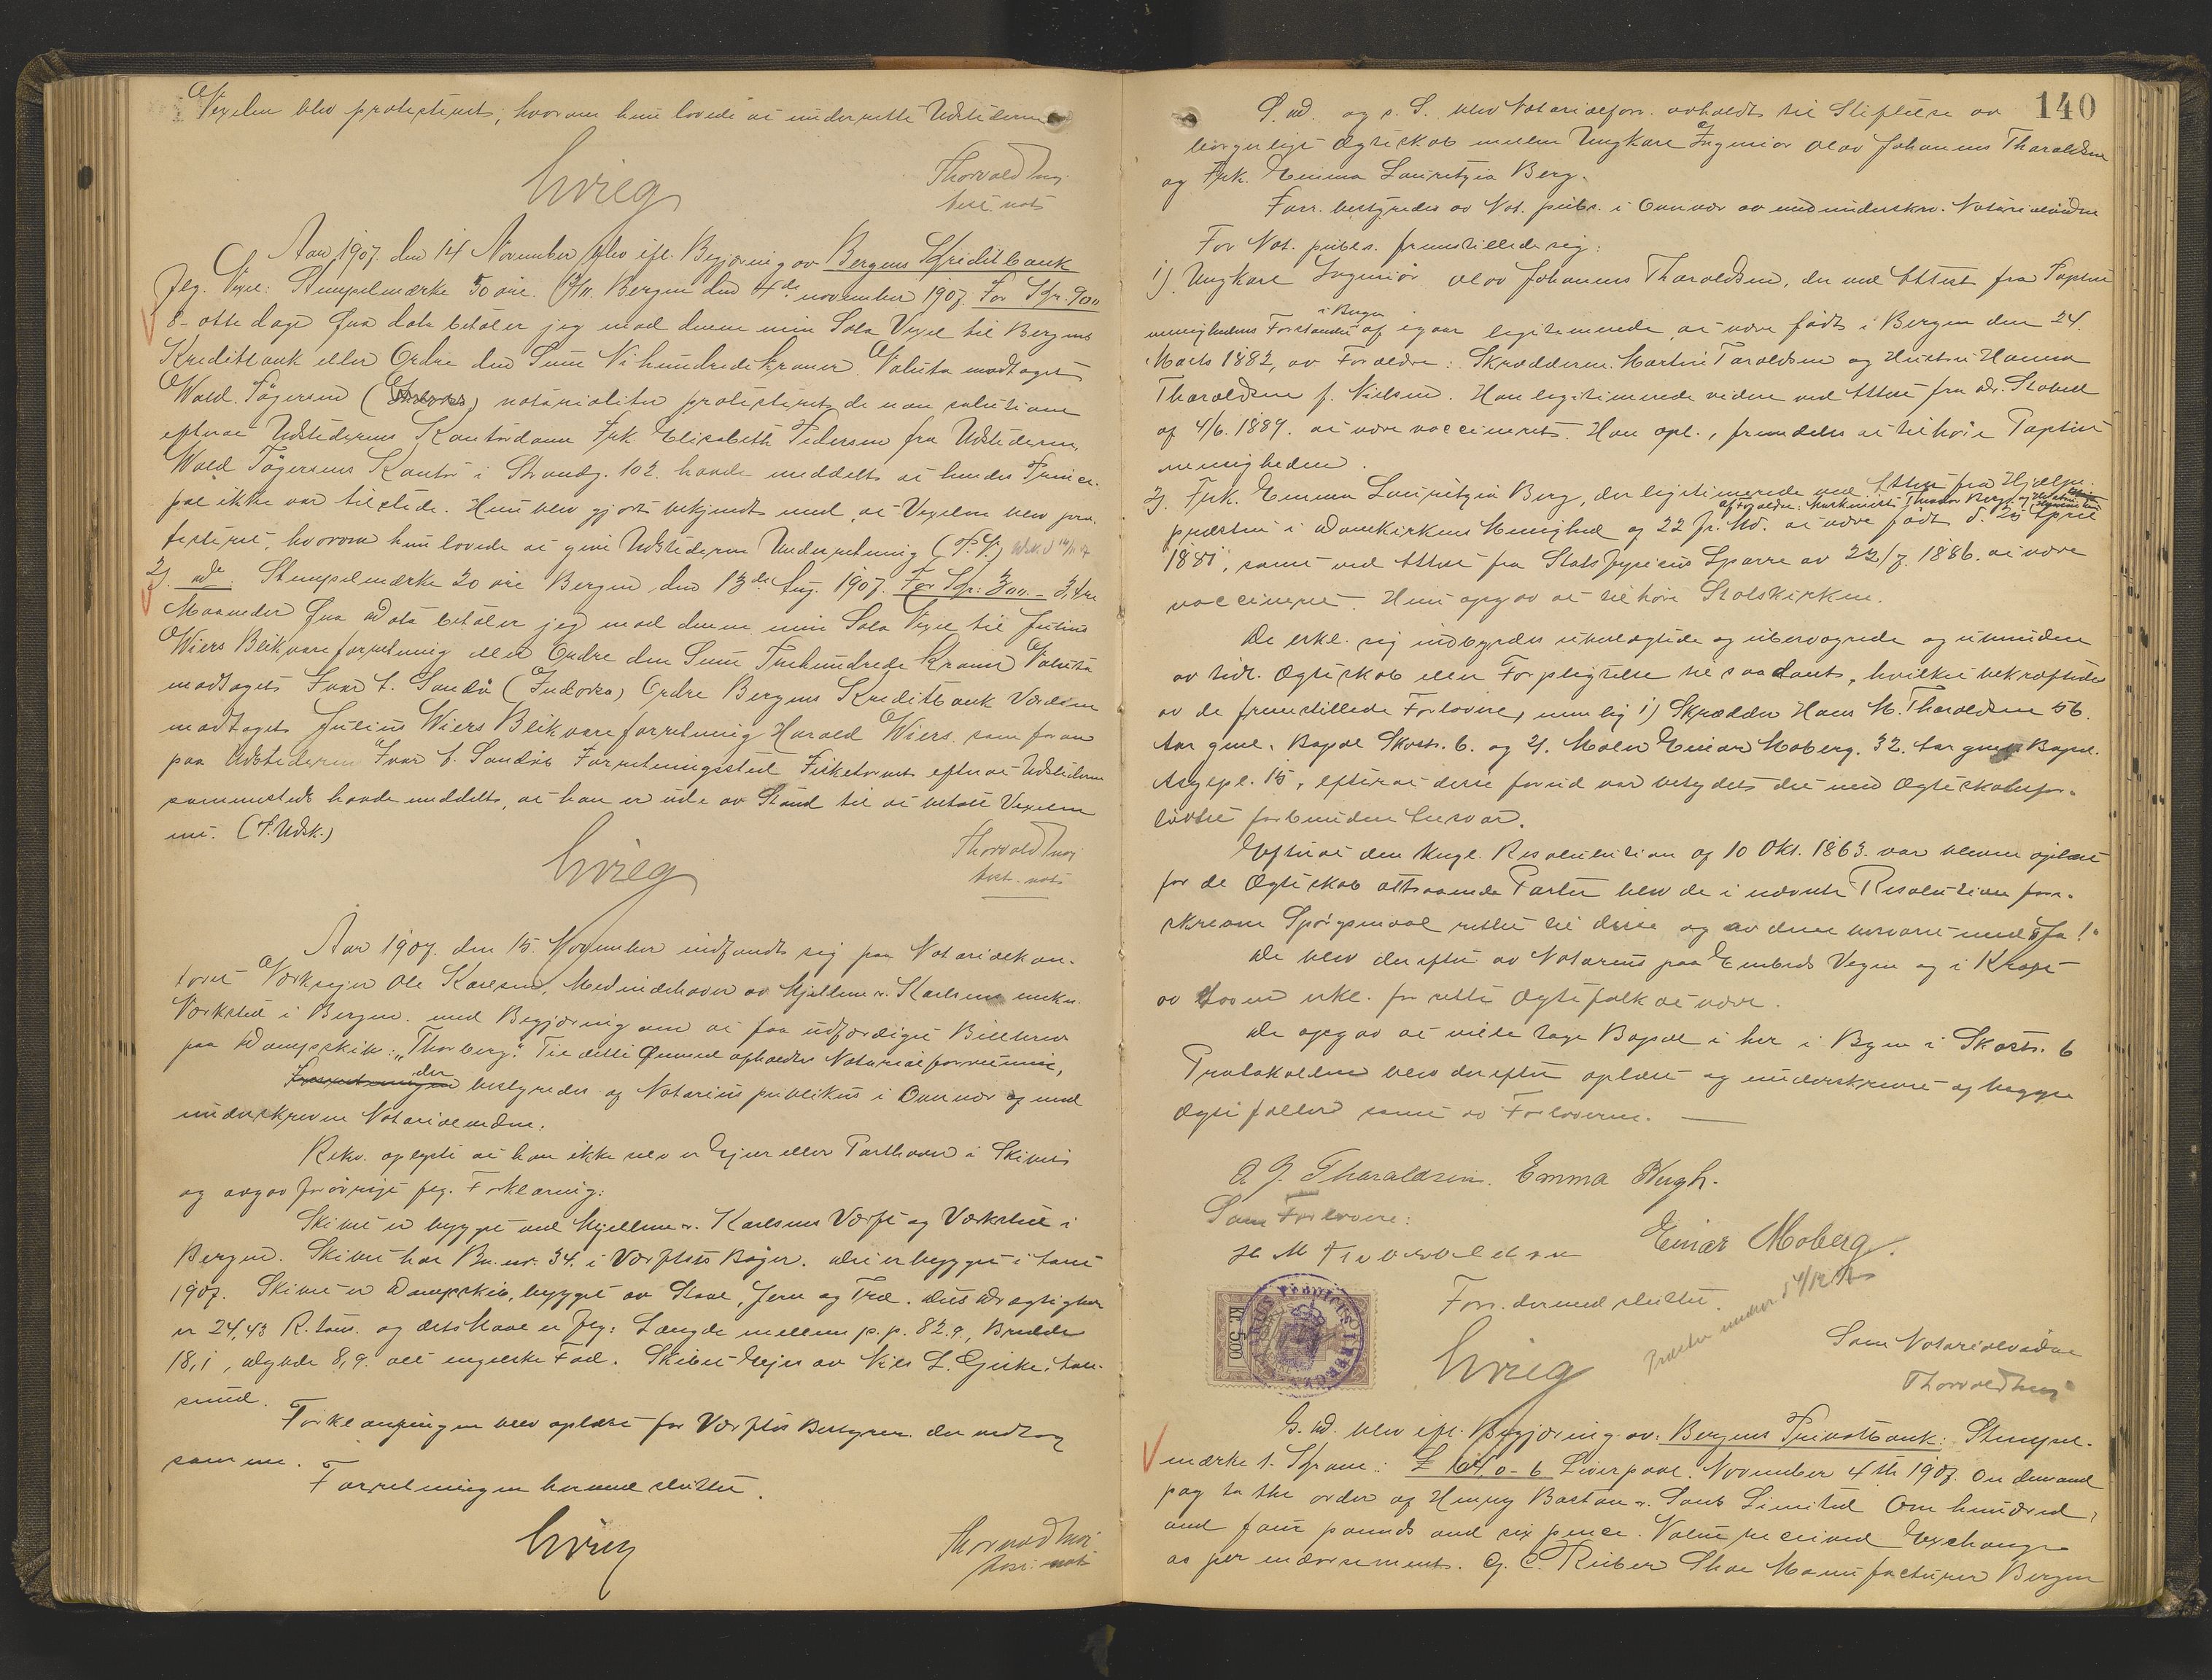 Vexelen blev protesteret, hvorom hun lovede at underrette Udstederen
Grieg
Thorvald
test. not.
Aar 1907 den 14 November blev ifl. Begjæring av Bergens Kreditbank
flg. Vexel: Stempelmærke 50 øre. Bergen den 4de november 1907. For Kr. 900
8 - otte dage fra dato betaler jeg mod denne min Sola Vexel til Bergens
Kreditbank eller Ordre den Sum Ni hundrede kroner. Valuta modtaget
Wald. Tögersen notarialiter protesteret de non solutione
efterat Udstederens Kontordame Frk. Elisabeth Pedersen fra Udstederen,
Wald Tögersens Kontor i Strandg. 102 havde meddelt at hendes Princi-
pal ikke var tilstede. Hun blev gjort bekjendt med, at Vexelen blev pro-
testeret, hvorom hun lovede at give Udstederen Underretning
2). ad. Stempelmærke 20 øre Bergen den 13de Aug. 1907. For Kr: 300.- 3, tre
Maaneder fra Dato betaler jeg mod denne min Sola Vexel til Julius
Wiers Blikvareforretning eller Ordre den Sum Trehundrede Kroner Valuta
modtaget Ivar t. Sandö (Indorsa) Ordre Bergens Kreditbank Værdien
modtaget Julius Wiers Blikvareforretning Harald Wiers. som foran
paa Udstederen Ivar t. Sandös Forretningssted Fisketorvet efterat Udstederen
sammesteds havde meddelt, at han er ude av Stand til at betale Vexelen
nu. (P. Udsk.)
Grieg
Thorvald
test. not.
Aar 1907. den 15. November indfandt sig paa Notarialkon-
toret Værkseier Ole Karlsen, Medindehaver av Mjellem & Karlsens mek.
Værksted i Bergen med Begjæring om at faa udfærdiget Bilbrev
paa Dampskib: "Thorberg". Til dette Öiemed afholdtes Notarialforretning,
der bestyredes af Notarius publikus i Overvær af med
underskrevne Notarialvidne.
Rekv. oplyste at han ikke selv er Ejer eller Parthaver i Skibet
og avgav forövrigt flg. Forklaring:
Skibet er bygget ved Mjellem & Karlsens Værft og Værksted i
Bergen. Skibet har Bn. nr. 34. i Værftets Böger. Det er bygget i Aaret
1907. Skibet er Dampskib, bygget av Staal, Jern og Træ. dets Drægtighed
er 24,43 R. tons. og dets Maal er flg: Længde mellem p.p. 82.9, Bredde
18,1, Dybde 8,9. alt engelske Fod. Skibet Eies av Nils L. Giske, Aale-
sund.
Forklaringen blev oplæst for Værftets Bestyrer. der vedtog
samme.
Forretningen hermed sluttet.
Grieg
Thorvald
test. not.
140
S. D. og s. S. blev Notarialforr. avholdt til Stiftelse av
borgerligt Ægteskab mellem Ungkarl Ingeniör Olav Johannes Tharaldsen
og Frk. Emma Lauritzia Berg.
Forr. bestyredes av Not. publ. i Overvær av medunderskr. Notarialvidne
For Not. publ. fremstillede sig:
1). Ungkarl Ingeniör Olav Johannes Tharaldsen, der ved Attest fra Baptist
menighedens Forstander i Bergen af igaar legitimerede at være födt i Bergen den 24.
Marts 1882, av Forældre: Skrædderen Martin Taraldsen og Hustru Hanna
Tharaldsen f. Nielsen. Han legitimerede videre ved Attest fra Dr. Stabell
af 4/6. 1889. at være vaccineret. Han opl., fremdeles at tilhöre Baptist
menigheden.
2). Frk. Emma Lauritzia Berg, der legitimerede ved Attest fra Hjælpe-
af Forældre: Maskinist Theodor Berg. og Hustru
præsten i Domkirkens Menighed og 22 f. Md. at være födt d. 25 April
1881, samt ved Attest fra Stadsfysicus Sparre av 22/7. 1886. at være
vaccineret. Hun opgav at tilhöre Statskirken.
De erkl. sig indbyrdes ubeslægtede og ubesvogrede og ubundne
av tidl. Ægteskab eller Forpligtelse til saadant, hvilket bekræftedes
av de fremstillede Forlovere, nemlig 1) Skrædder Hans M. Tharaldsen 56.
Aar gml. Bopæl Skostr. 6. og 2). Maler Einar Moberg. 32. Aar gml. Bopæl.
15, efterat disse forud var betydet det med Ægteskabsfor-
löftet forbundne Ansvar.
Efterat den Kngl. Resolution af 10 Okt. 1863. var bleven oplæst
for de Ægteskab attraaende Parter blev de i nævnte Resolution fore-
skrevne Spörgsmaal rettet til disse og av dem besvaret med "Ja!"
De blev derefter av Notarius paa Embeds Vegne og i Kraft
av Loven erkl. for rette Ægtefolk at være.
De opgav at ville tage Bopæl i her i Byen i Skostr. 6
Protokollen blev derefter oplæst og underskrevet af begge
Ægtefæller samt av Forloverne.
O. J. Tharaldsen. Emma Bergh.
Som Forlovere:
H M Tharaldsen Einar Moberg.
Forr. dermed sluttet.
Kr. 5.00
NOTARIUS PUBLICUS I BERGEN
Grieg
Som Notarialvidne
Thorvald
S. D. blev ifl. Begjæring av: Bergens Privatbank: Stempel-
mærke 1. Krone: £ 104 0-6 Liverpool. November 4th 1907. On demand
pay to the order of Henry Bastow & Sons Limited One hundred
and four pounds and six pence. Value received Exchange
as per endorsement. G. C. Rieber Shoe Manufacturer Bergen